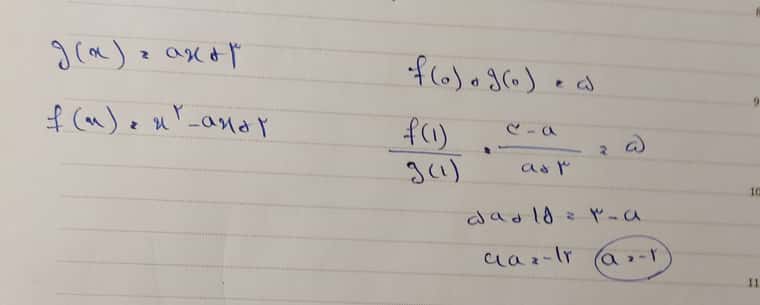 g(x) = ax + ۳
f(x) = x^۲ - ax + ۲
f(0) + g(0) = ۵
f(1)/g(1) = (۳ - a)/(a + ۳) = ۵
۵a + ۱۵ = ۳ - a
۶a = -۱۲ a = -۲
9
10
11